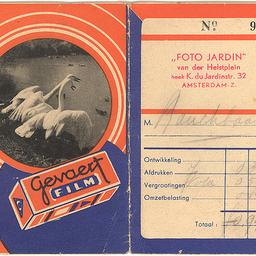 Gevaert
FILM
Nº 9
„FOTO JARDIN"
van der Helstplein
hoek K. du Jardinstr. 32
AMSTERDAM-Z.
M.
Ontwikkeling
Afdrukken
Vergrootingen
Omzetbelasting
Totaal :